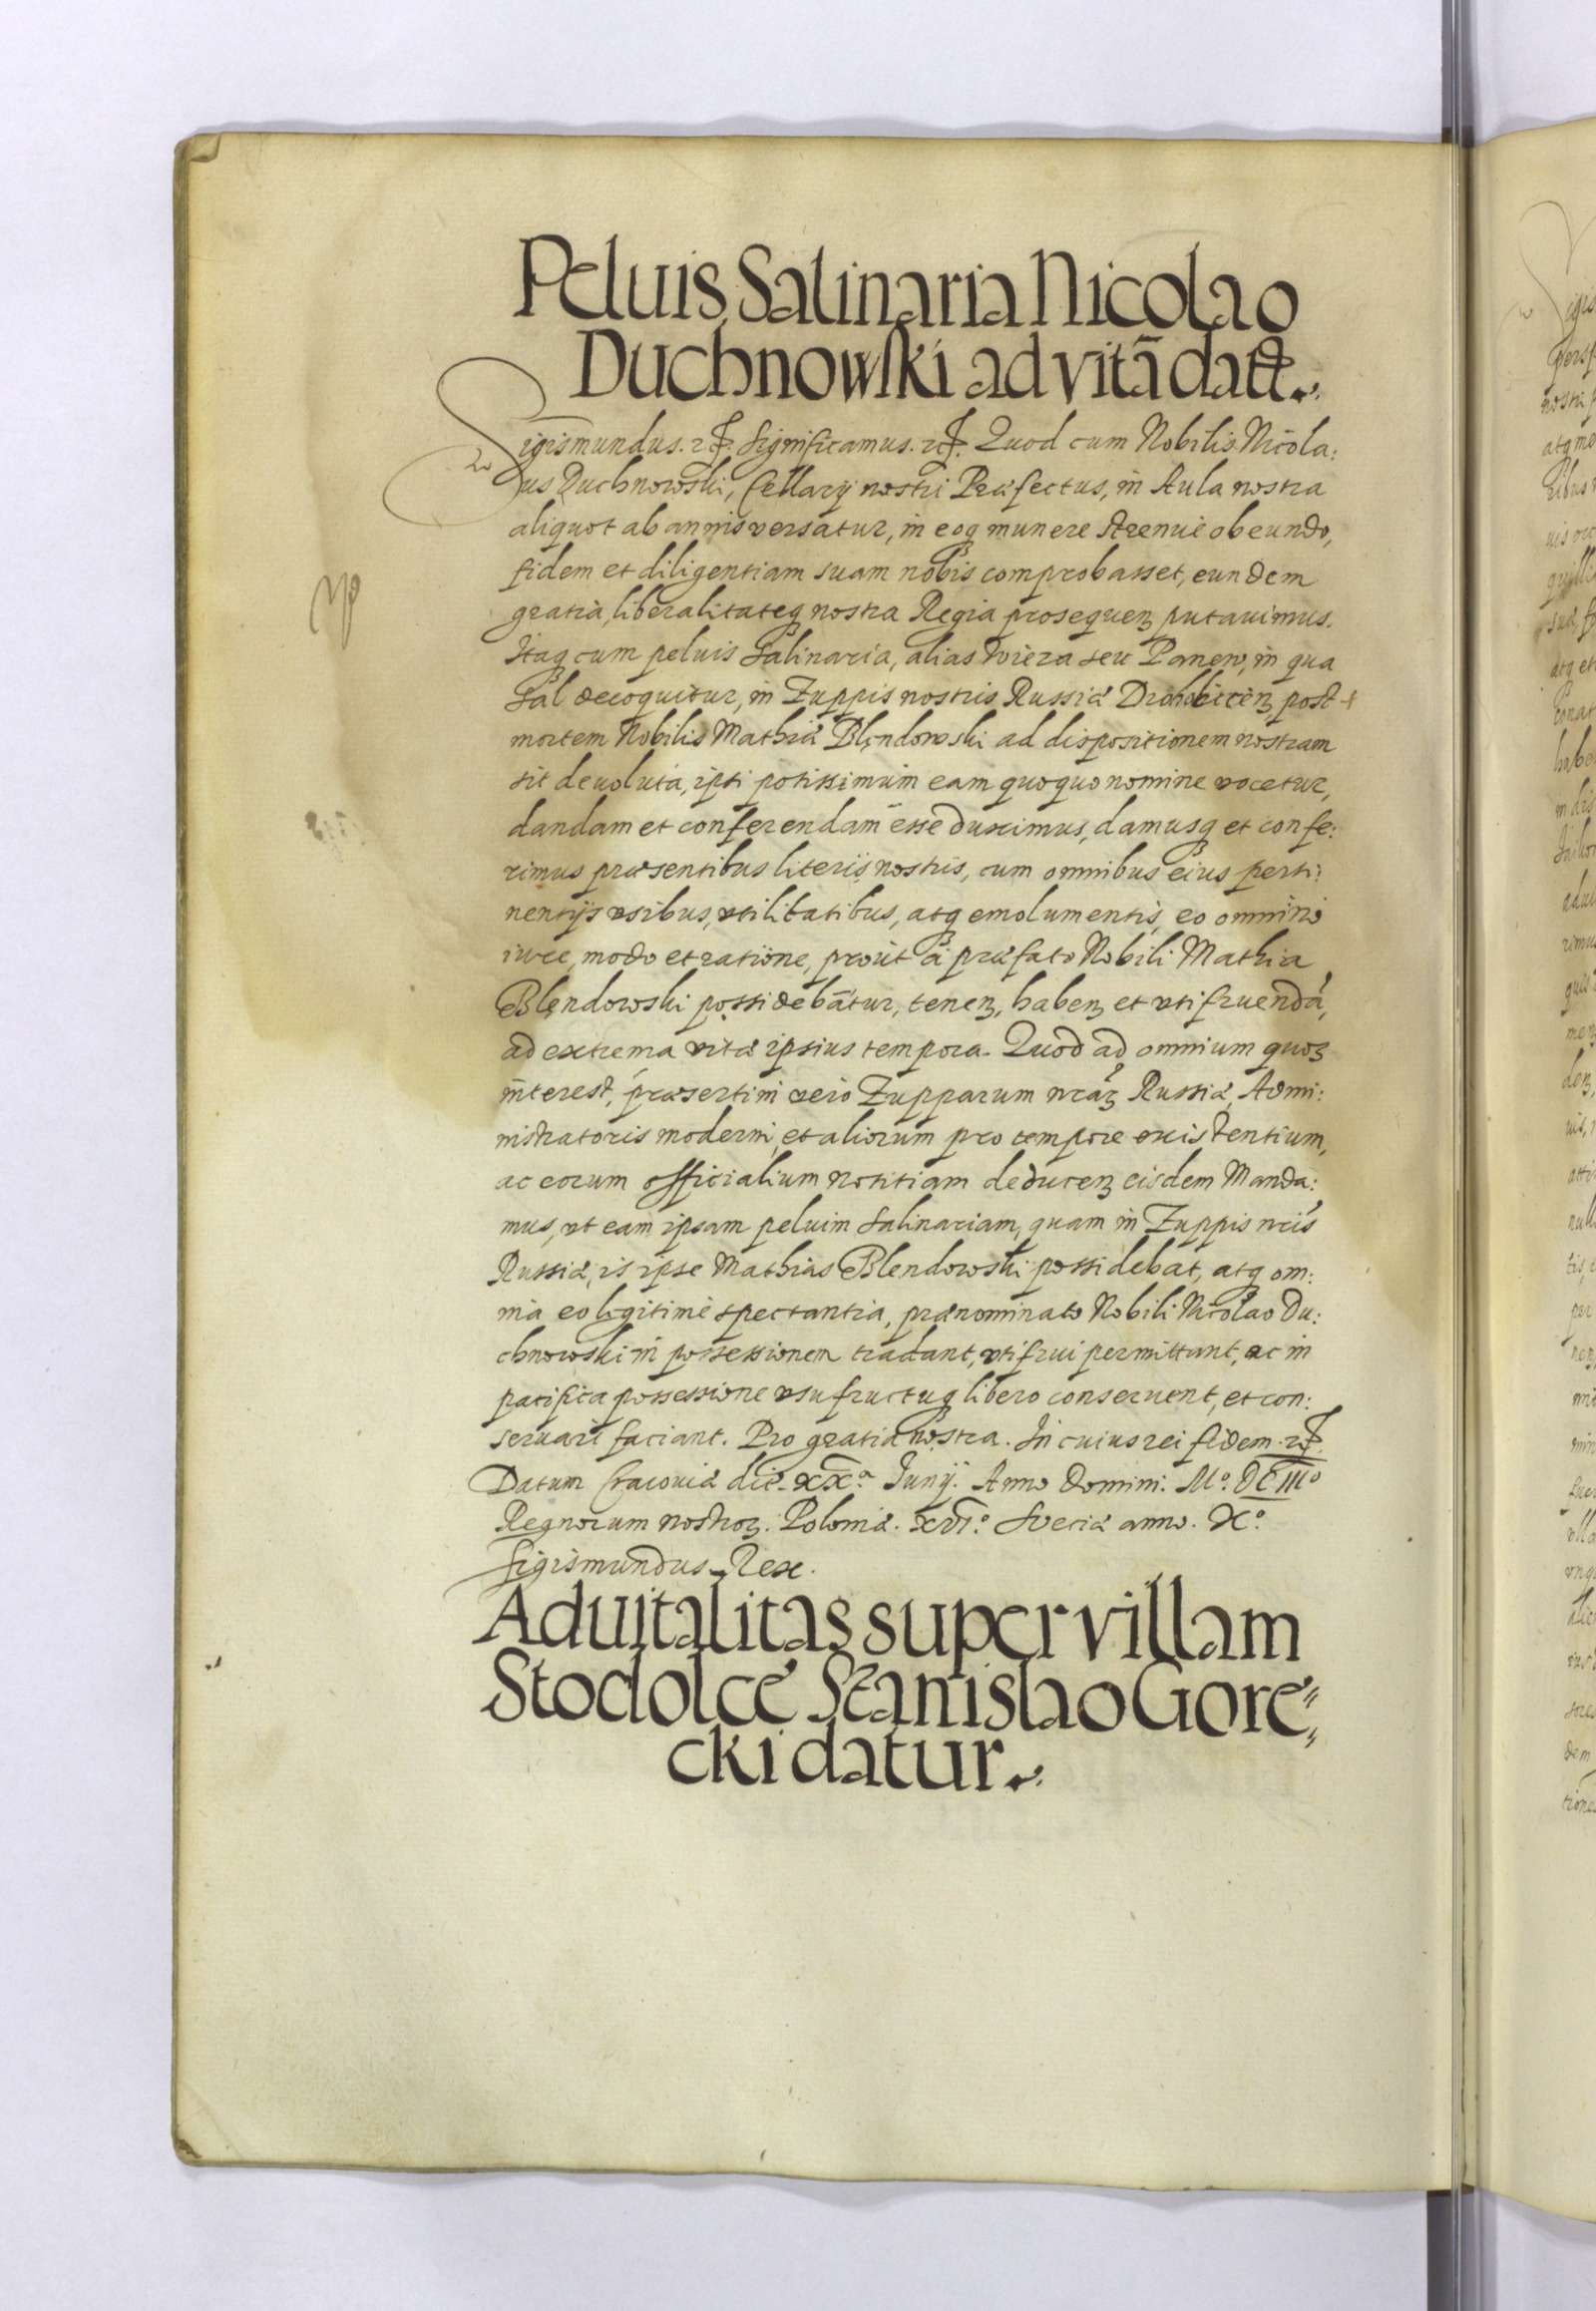 Peluis Salinaria Nicolao
Duchnowski ad vitā dat̃.
Sigismundus. etc. Significamus. etc. Quod cum Nobilis Nicola:
us Duchnowski, Cellarij nostri Præfectus, in Aula nostra
aliquot ab annis versatur, in eoq munere strenuè obeundo,
fidem et diligentiam suam nobis comprobasset, eundem
gratia, liberalitateq nostra Regia prosequenȝ putauimus.
Itaq cum peluis Salinaria, alias Wieza seu Panew, in qua
Sal decoquitur, in Zuppis nostris Russiæ Drohobicenȝ post
mortem Nobilis Mathiæ Blęndowski ad dispositionem nostram
sit deuoluta, ipsi potissimùm eam quoquo nomine vocetur,
dandam et conferendam esse duximus, damusq et confe:
rimus præsentibus literis nostris, cum omnibus eius perti:
nentijs vsibus, vtilitatibus, atq emolumentis, eo omnino
iure, modo et ratione, prout à præfato Nobili Mathia
Blęndowski possidebatur, tenenȝ, habenȝ et vtifruendā,
ad extrema vitæ ipsius tempora. Quod ad omnium quoȝ
interest, præsertim verò Zupparum nraȝ Russiæ, Admi:
nistratoris moderni, et aliorum pro tempore existentium,
ac eorum officialium notitiam deducenȝ eisdem Manda:
mus, vt eam ipsam peluim Salinariam, quam in Zuppis nris
Russiæ, is ipse Mathias Blendowski possidebat, atq om:
nia eo legitimè spectantia, prænominato Nobili Nicolao Du:
chnowski in possessionem tradant, vtifrui permittant, ac in
pacifica possessione vsufructuq libero conseruent, et con:
seruari faciant. Pro gratia nostra. In cuius rei fidem. etc.
Datum Cracouiæ die. xx.a Junij. Anno Domini. Mo. DC IIIo
Regnorum nostroȝ. Poloniæ. xvi.o Sveciæ anno. Xo.
Sigismundus Rex.
Aduitalitas super villam
Stodolcé Stanislao Gore"
cki datur.